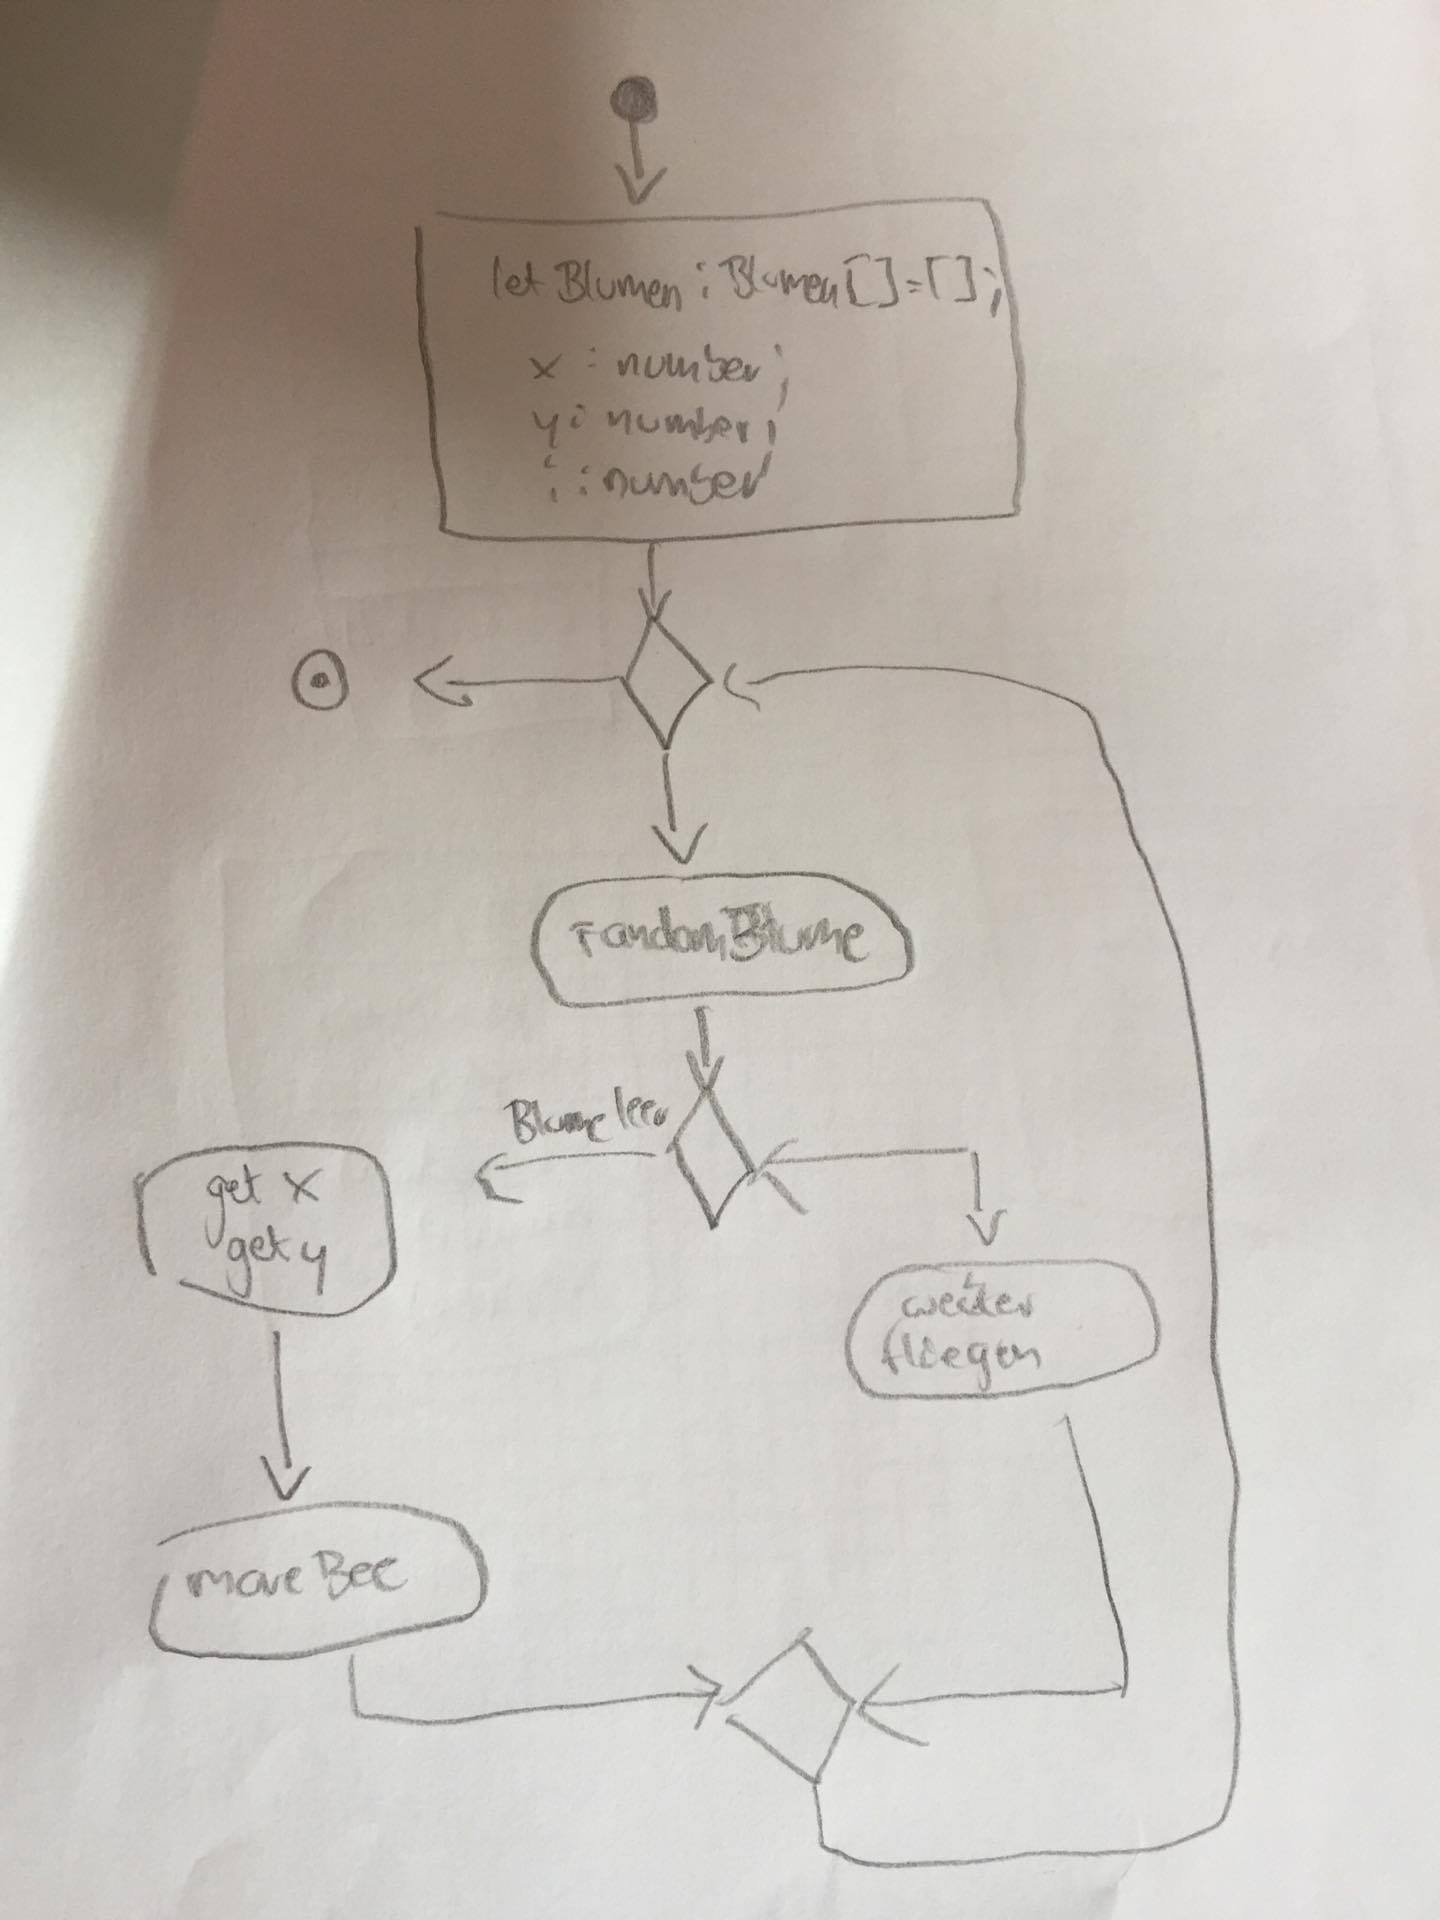 let Blumen : Blumen[]=[];
x : number;
y : number;
i : number
randomBlume
Blume leer
get x
get y
weiter
fliegen
move Bee